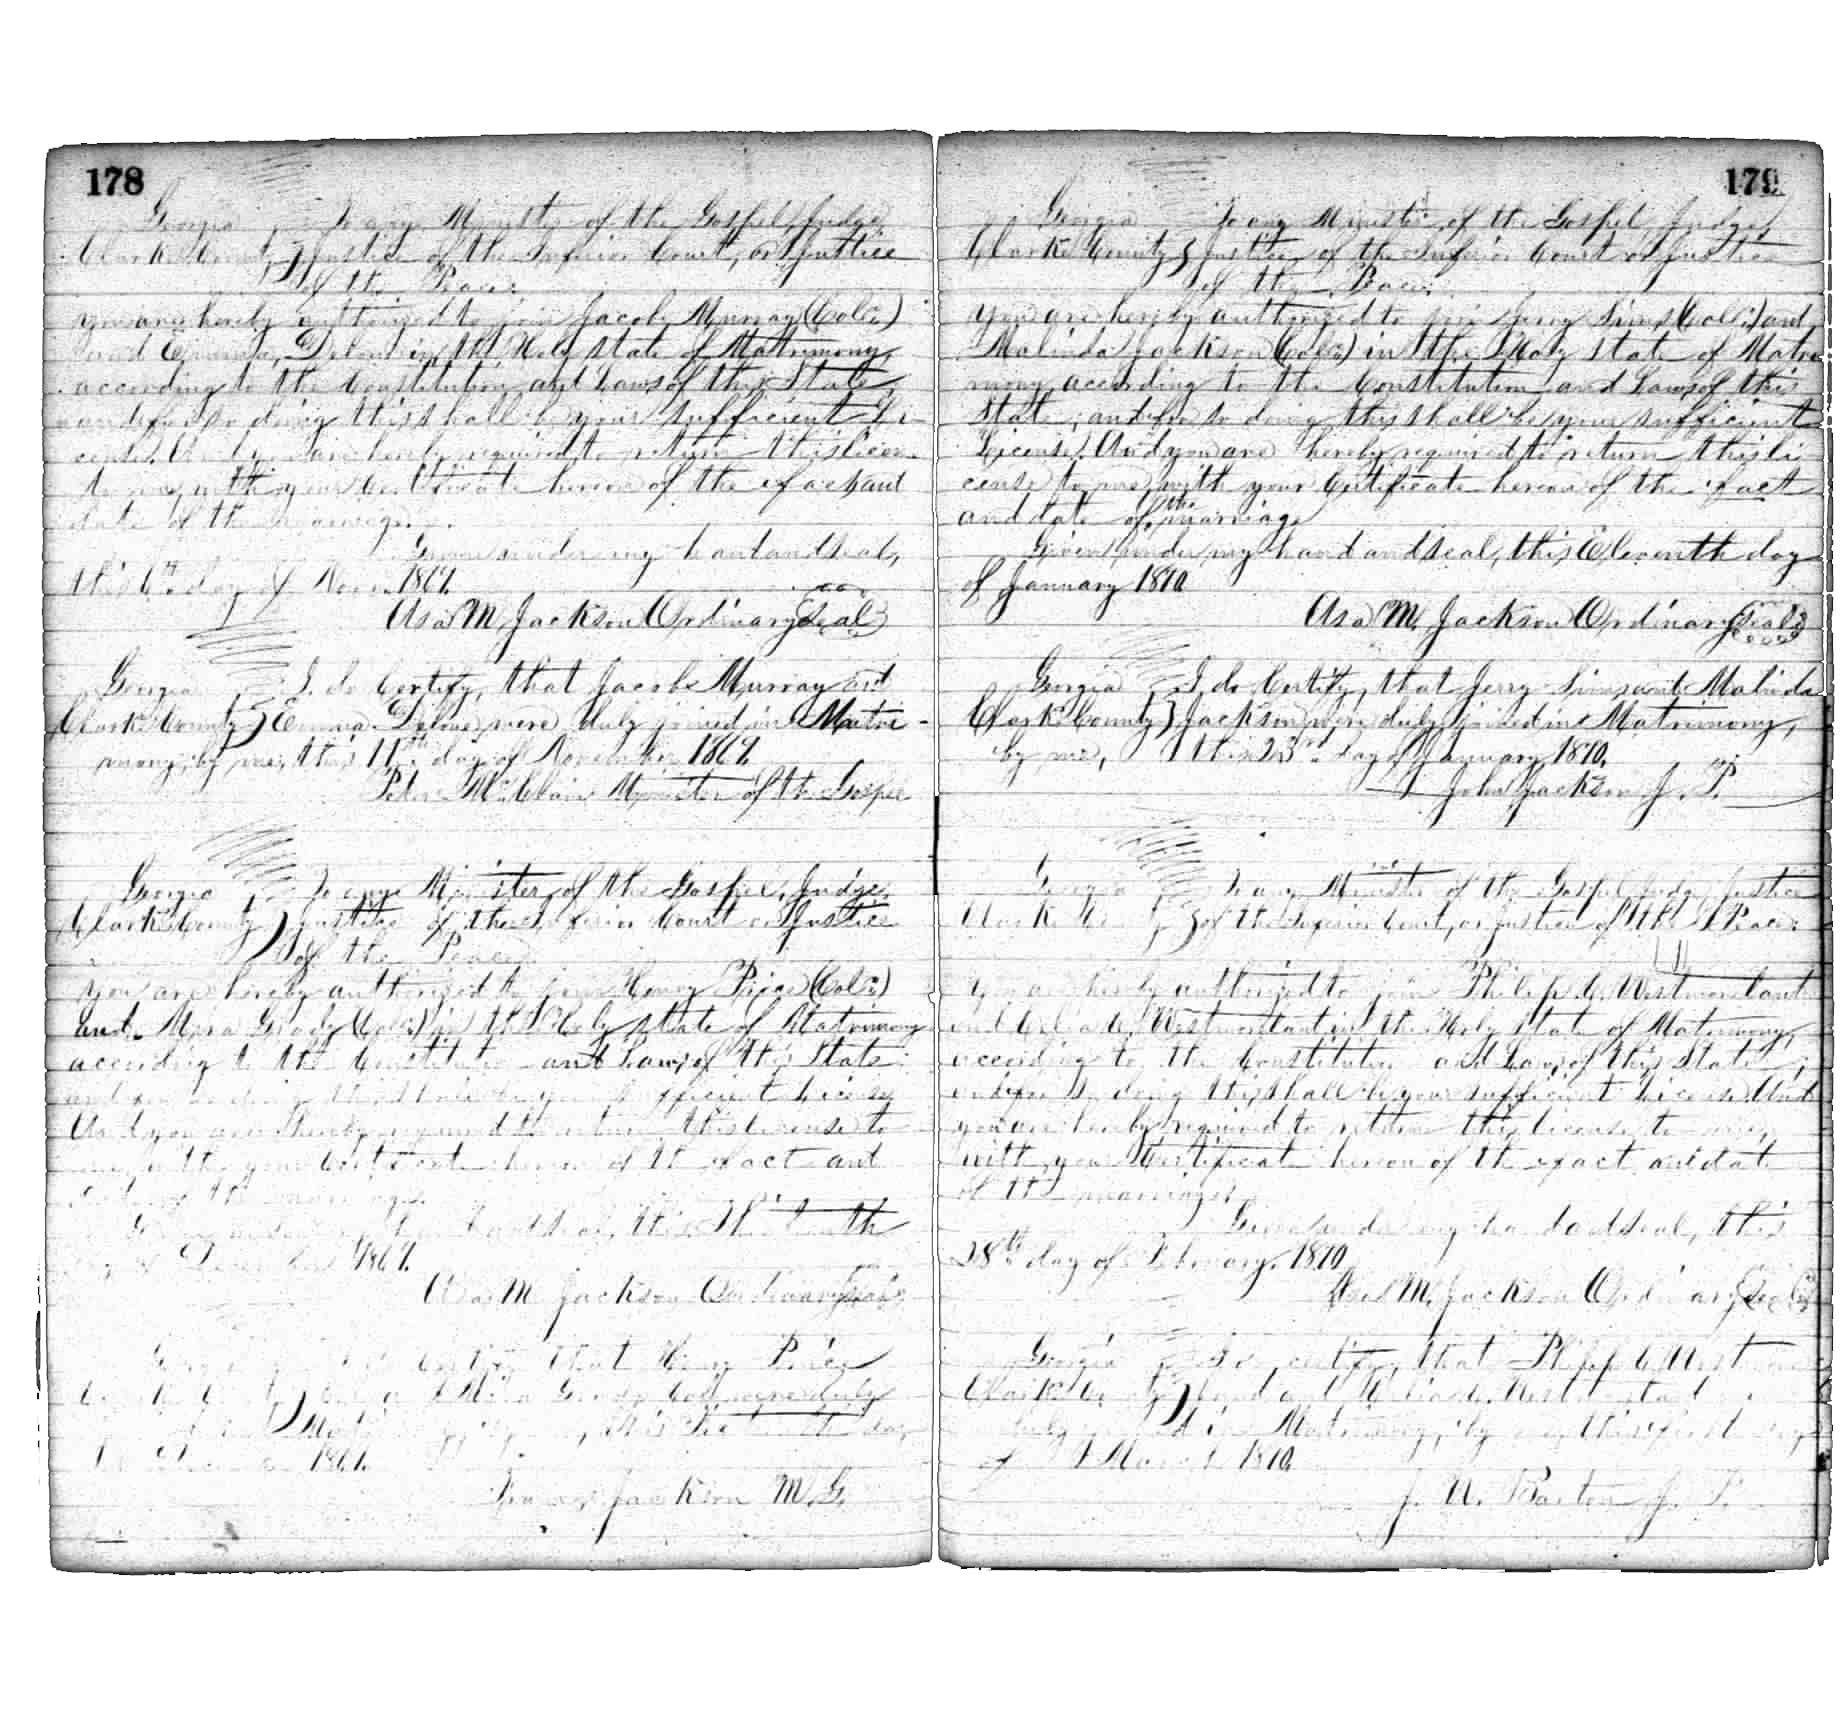 178
Georgia To any Minister of the Gospel, Judge,
Clarke County } Justice of the Inferior Court, or Justice
of the Peace:
you are hereby authorized to join Jacob Murray (Col:)
and Emma Delone in the Holy state of Matrimony,
according to the Constitution and Laws of this State,
and for so doing this shall be your sufficient Li-
cense. And you are hereby required to return this licen
to me, with your Certificate hereon of the exact and
date of the marriage.
Given under my hand and seal,
this 6th day of Novr. 1869.
Asa M. Jackson Ordinary Seal
Georgia I do Certify, that Jacob Murray and
Clarke County } Emma Delone were duly joined in Matri-
mony, by me, this 11th day of November 1869.
Peter McClain Minister of the Gospel
Georgia To any Minister of the Gospel, Judge,
Clarke County } Justice of the Inferior Court or Justice
of the Peace:
you are hereby authorized to join Henry (Col:)
and Mira Grady (Col:) in the Holy state of Matrimony
according to the Constitution and Laws of this State;
and for so doing this shall be your sufficient License
And you are hereby required to return this License to
me, with your Certificate hereon of the exact and
date of the marriage.
Given under my hand and seal, this Thirteenth
day of December 1869.
Asa M. Jackson Ordinary Seal
Georgia I do certify that Henry
Clarke County } Col: & Mira Grady Col: were duly
this day
of December 1869.
Jackson M. G.
179
Georgia To any Minister of the Gospel, Judge,
Clarke County } Justice of the Inferior Court or Justice
of the Peace:
You are hereby authorized to join Jerry Sims (Col:) and
Malinda Jackson (Col:) in the Holy state of Matri
mony, according to the Constitution and Laws of this
State; and for so doing this shall be your sufficient
License. And you are hereby required to return this li
cense to me, with your Certificate hereon of the exact
and date of the marriage
Given under my hand and seal, this Eleventh day
of January 1870
Asa M. Jackson Ordinary Seal
Georgia I do Certify, that Jerry Sims and Malinda
Clarke County } Jackson were duly joined in Matrimony,
by me, this 23rd day of January 1870.
John Jackson J. P.
Georgia To any Minister of the Gospel, Judge, Justice
Clarke County } of the Inferior Court, or Justice of the Peace:
You are hereby authorized to join Philip C. Westmoreland
and C. Westmoreland in the Holy state of Matrimony,
according to the Constitution and Laws of this State;
and for so doing this shall be your sufficient License. And
you are hereby required to return this license to me,
with your Certificate hereon of the exact and date
of the marriage
Given under my hand and seal, this
28th day of February, 1870
Asa M. Jackson Ordinary Seal
Georgia I do certify, that Philip C. Westmore
Clarke County } land and C. Westmoreland were
duly joined in Matrimony, by me, this first day
of March 1870.
J. A. Barton J. P.